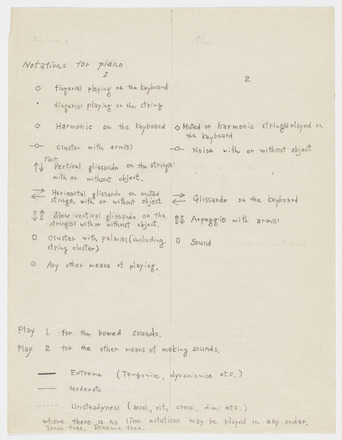 Notations for piano
1
2
finger(s) playing on the keyboard
finger(s) playing on the string
Harmonic on the keyboard
Muted or harmonic string(s) played on
the keyboard
Cluster with arm(s)
Noise with or without object
Fast
Vertical glissando on the string(s)
with or without object.
Horizontal glissando on muted
strings, with or without object
Glissando on the keyboard
Slow vertical glissando on the
string(s) with or without object.
Arpeggio with arm(s)
Cluster with palm(s) (including
string cluster)
Sound
Any other means of playing.
Play 1 for the bowed sounds.
Play 2 for the other means of making sounds.
Extreme (Temporwise, dynamicwise etc.)
Moderate
Unsteadyness (accel, rit, cresc, dim, etc.)
where there is no line notations may be played in any order.
Tempo free. Dynamic free.